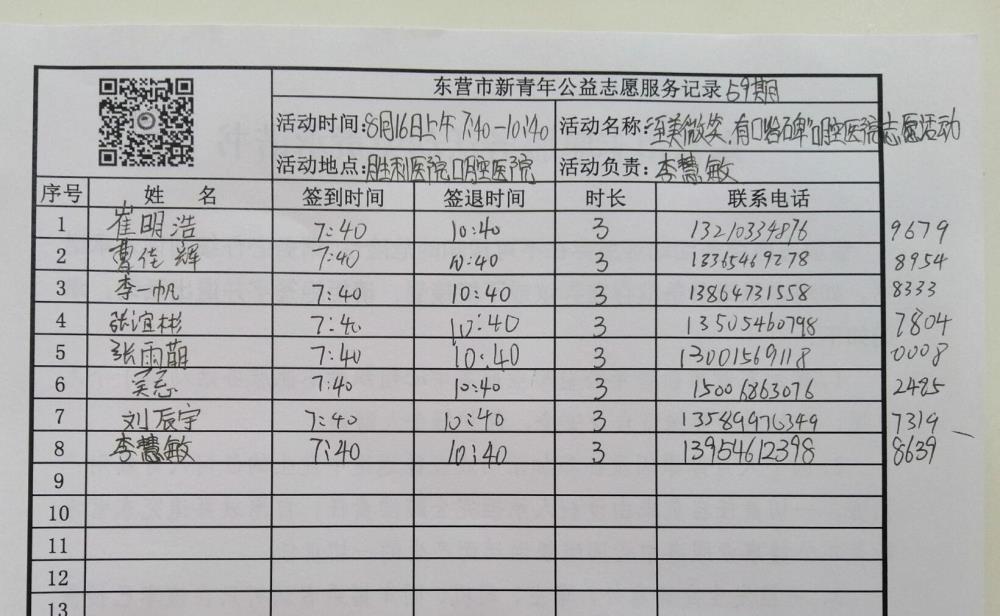 东营市新青年公益志愿服务记录59期
活动时间:8月16日上午7:40-10:40 活动名称:"至美微笑.有口皆碑"口腔医院志愿活动
活动地点:胜利医院口腔医院 活动负责:李慧敏
序号 姓 名 签到时间 签退时间 时长 联系电话
1 崔明浩 7:40 10:40 3 13210334876 9679
2 曹佳辉 7:40 10:40 3 13365469278 8954
3 李一帆 7:40 10:40 3 13864731558 8333
4 张谊彬 7:40 10:40 3 13505460798 7804
5 张雨萌 7:40 10:40 3 13001569118 0008
6 吴忌 7:40 10:40 3 15006863076 2485
7 刘辰宇 7:40 10:40 3 13589976349 7319
8 李慧敏 7:40 10:40 3 13954612398 8639
9
10
11
12
13